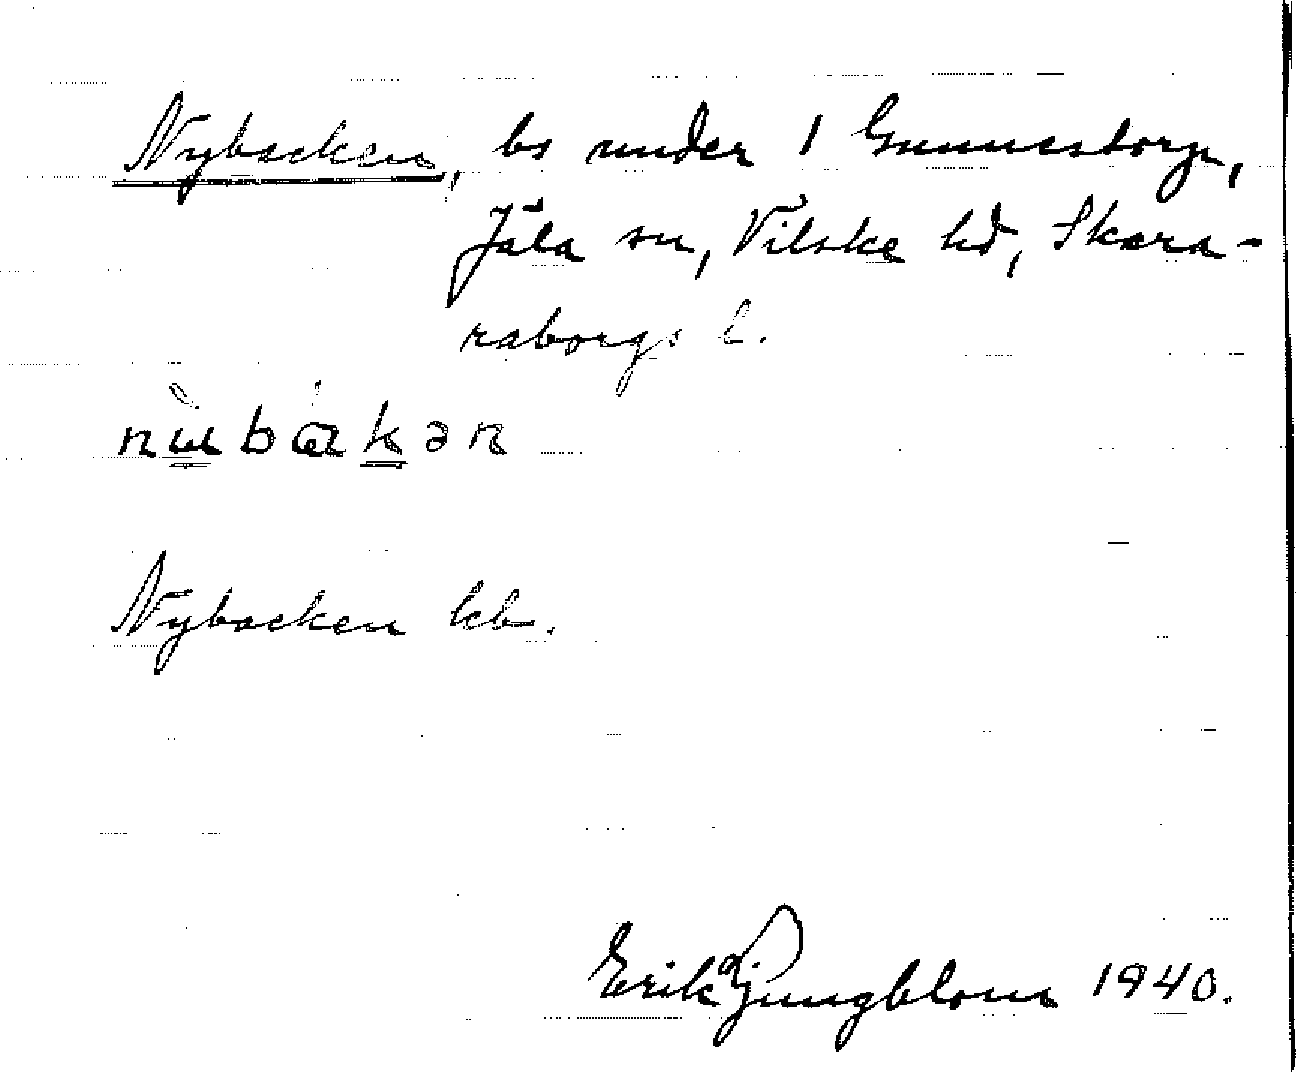 Nybacken, bs under 1 Gunnestorp,
Jäla sn, Vilske hd, Skara-
raborgs l.
Nybacken kb.
Erik Ljungblom 1940.